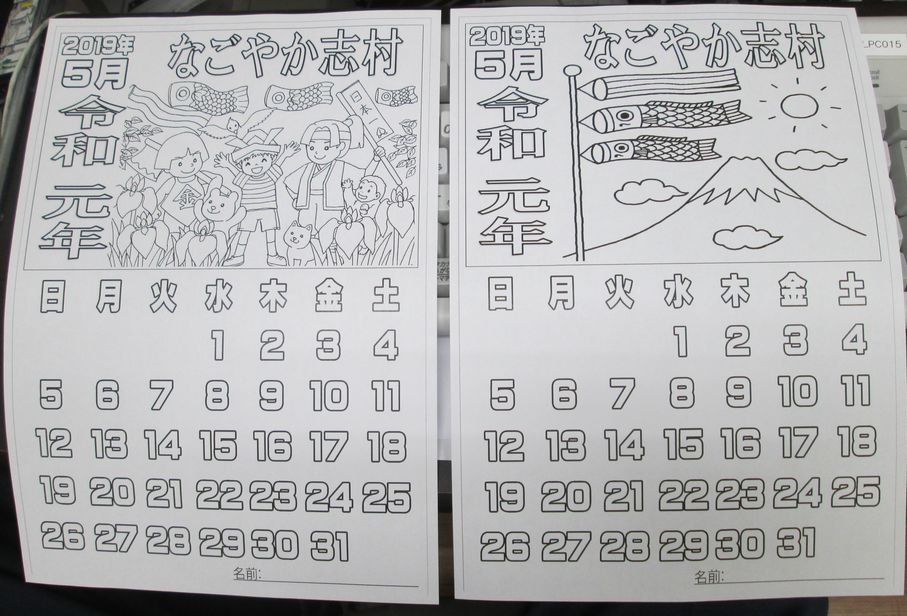 2019年
5月
なごやか志村
令和
元年
日本一
金
日 月 火 水 木 金 土
1 2 3 4
5 6 7 8 9 10 11
12 13 14 15 16 17 18
19 20 21 22 23 24 25
26 27 28 29 30 31
名前:
2019年
5月
なごやか志村
令和
元年
日 月 火 水 木 金 土
1 2 3 4
5 6 7 8 9 10 11
12 13 14 15 16 17 18
19 20 21 22 23 24 25
26 27 28 29 30 31
名前:
LPC015